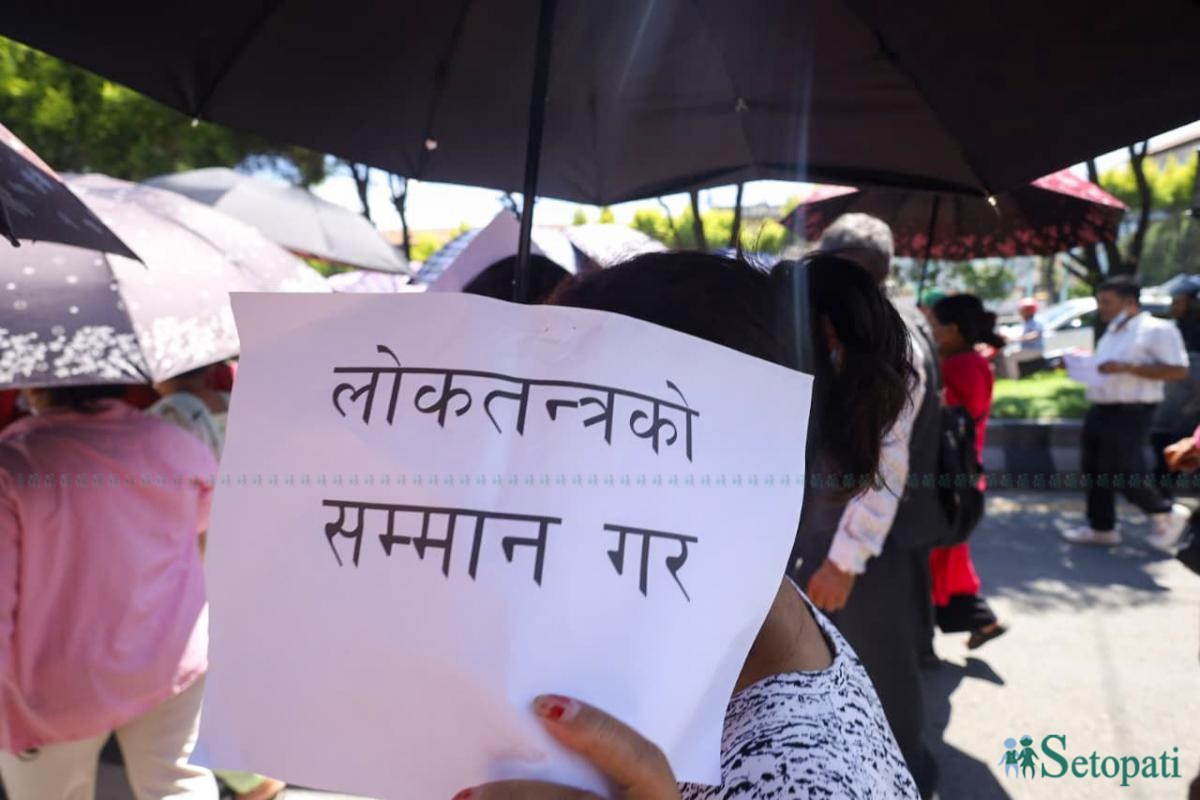 लोकतन्त्रको
सम्मान गर
Setopati